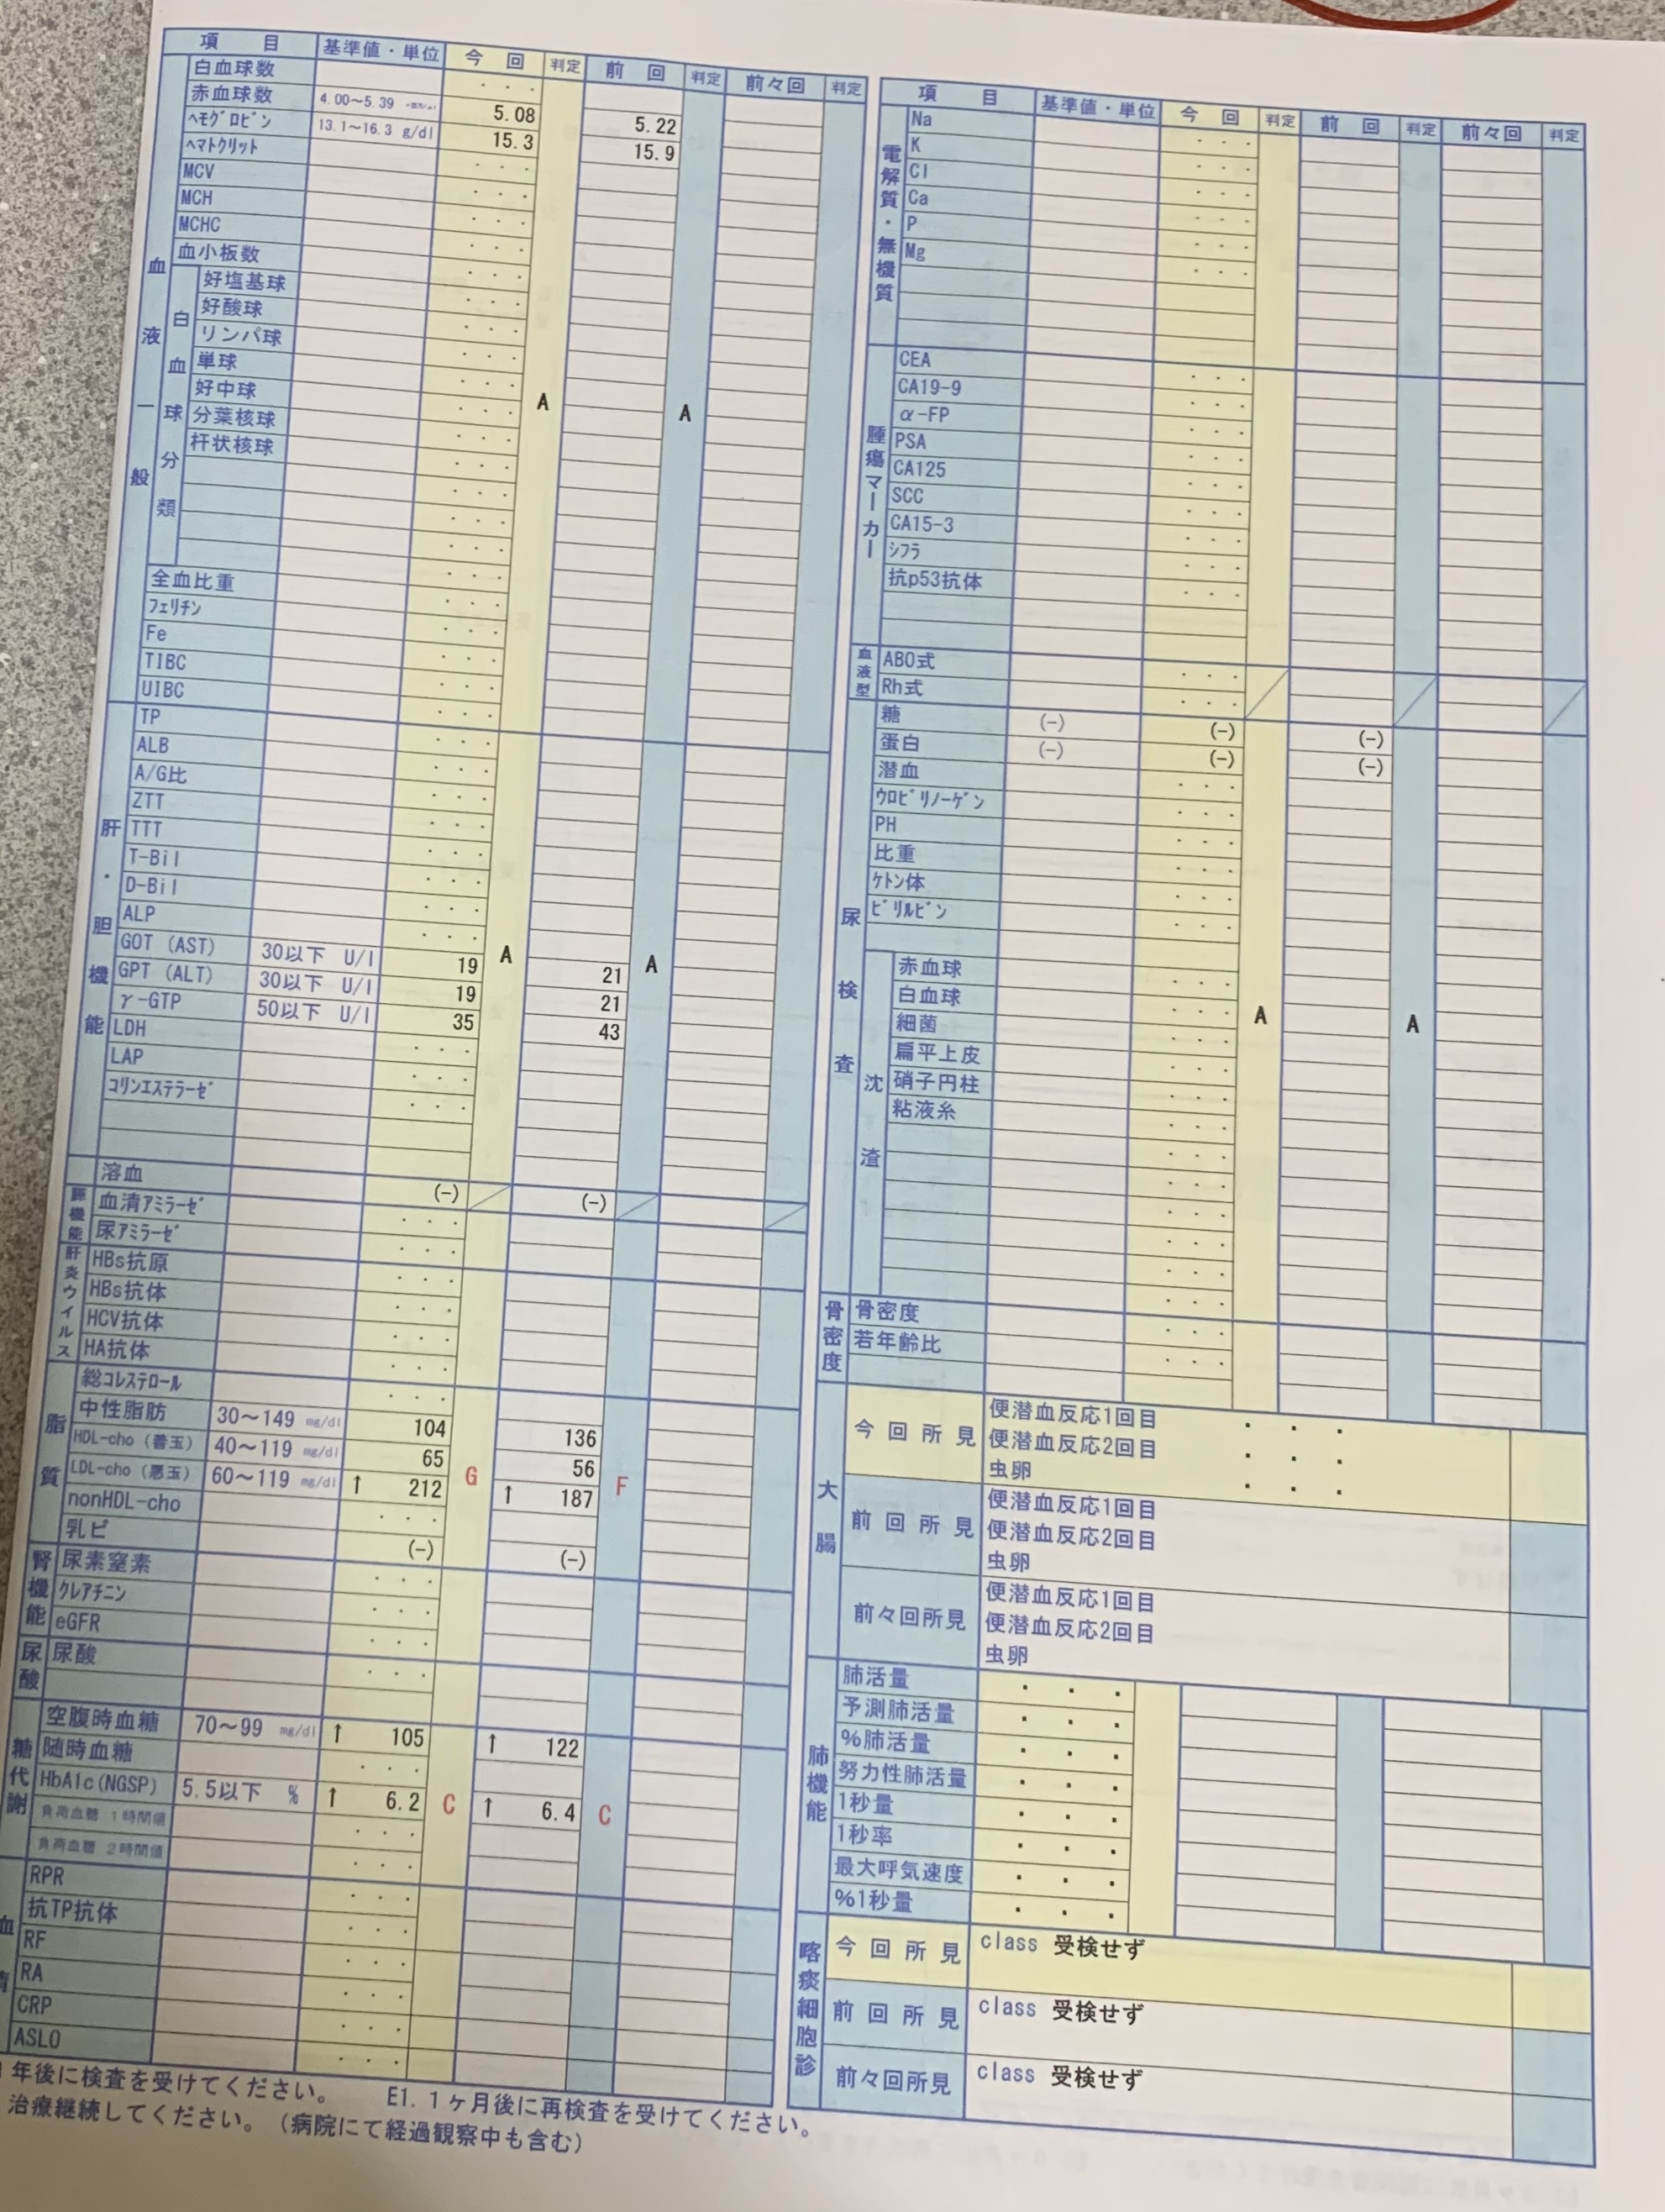 項 目 基準値・単位 今 回 判定 前 回 判定 前々回 判定
血液一般
白血球数
赤血球数 4.00～5.39 5.08 5.22
ﾍﾓｸﾞﾛﾋﾞﾝ 13.1～16.3 g/dl 15.3 15.9
ﾍﾏﾄｸﾘｯﾄ
MCV
MCH
MCHC
血小板数
白血球分類
好塩基球
好酸球
リンパ球
単球
好中球 A A
分葉核球
杆状核球
全血比重
ﾌｪﾘﾁﾝ
Fe
TIBC
UIBC
肝・胆機能
TP
ALB
A/G比
ZTT
TTT
T-Bil
D-Bil
ALP
GOT (AST) 30以下 U/l 19 A 21 A
GPT (ALT) 30以下 U/l 19 21
γ-GTP 50以下 U/l 35 43
LDH
LAP
ｺﾘﾝｴｽﾃﾗｰｾﾞ
溶血 (-) (-)
膵機能
血清ｱﾐﾗｰｾﾞ
尿ｱﾐﾗｰｾﾞ
肝炎ウイルス
HBs抗原
HBs抗体
HCV抗体
HA抗体
脂質
総ｺﾚｽﾃﾛｰﾙ
中性脂肪 30～149 mg/dl 104 136
HDL-cho (善玉) 40～119 mg/dl 65 G 56 F
LDL-cho (悪玉) 60～119 mg/dl ↑ 212 ↑ 187
nonHDL-cho
乳ビ (-) (-)
腎機能
尿素窒素
ｸﾚｱﾁﾆﾝ
eGFR
尿酸
尿酸
糖代謝
空腹時血糖 70～99 mg/dl ↑ 105 ↑ 122
随時血糖
HbA1c(NGSP) 5.5以下 % ↑ 6.2 C ↑ 6.4 C
負荷血糖 1時間値
負荷血糖 2時間値
血清
RPR
抗TP抗体
RF
RA
CRP
ASLO
年後に検査を受けてください。 E1. 1ヶ月後に再検査を受けてください。
治療継続してください。（病院にて経過観察中も含む）
項 目 基準値・単位 今 回 判定 前 回 判定 前々回 判定
電解質・無機質
Na
K
Cl
Ca
P
Mg
腫瘍マーカー
CEA
CA19-9
α-FP
PSA
CA125
SCC
CA15-3
ｼﾌﾗ
抗p53抗体
血液型
ABO式
Rh式
尿検査
糖 (-) (-) (-)
蛋白 (-) (-) (-)
潜血
ｳﾛﾋﾞﾘﾉｰｹﾞﾝ
PH
比重
ｹﾄﾝ体
ﾋﾞﾘﾙﾋﾞﾝ
沈渣
赤血球
白血球
細菌 A A
扁平上皮
硝子円柱
粘液糸
骨密度
骨密度
若年齢比
大腸
今回所見
便潜血反応1回目
便潜血反応2回目
虫卵
前回所見
便潜血反応1回目
便潜血反応2回目
虫卵
前々回所見
便潜血反応1回目
便潜血反応2回目
虫卵
肺機能
肺活量
予測肺活量
%肺活量
努力性肺活量
1秒量
1秒率
最大呼気速度
%1秒量
喀痰細胞診
今回所見 class 受検せず
前回所見 class 受検せず
前々回所見 class 受検せず